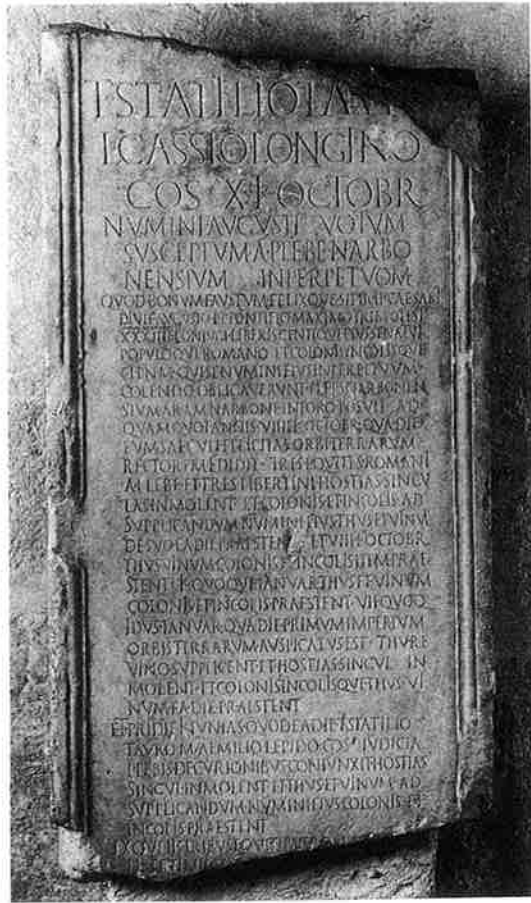 T STATILIO TAV
L CASSIO LONGINO
COS X K OCTOBR
NVMINI AVGVSTI VOTVM
SVSCEPTVM A PLEBE NARBO
NENSIVM INPERPETVOM
QVOD BONVM FAVSTVM FELIXQVE SIT IMP CAESARI
DIVI F AVGVSTO P P PONTIFICI MAXIMO TRIB POTEST
XXXIIII CONIVGI LIBERIS GENTIQVE EIVS SENATVI
POPVLOQVE ROMANO ET COLONIS INCOLISQVE
C I P N M QVI SE NVMINI EIVS IN PERPETVVM
COLENDO OBLIGAVERVNT PLEBS NARBONEN
SIVM ARAM NARBONE IN FORO POSVIT AD
QVAM QVOTANNIS VIIII K OCTOBR QVA DIE
EVM SAECVLI FELICITAS ORBI TERRARVM
RECTOREM EDIDIT TRES EQVITES ROMANI
A PLEBE ET TRES LIBERTINI HOSTIAS SINGV
LAS INMOLENT ET COLONIS ET INCOLIS AD
SVPPLICANDVM NVMINI EIVS THVS ET VINVM
DE SVO EA DIE PRAESTENT ET VIII K OCTOBR
THVS VINVM COLONIS ET INCOLIS ITEM PRAE
STENT K QVOQVE IANVAR THVS ET VINVM
COLONIS ET INCOLIS PRAESTENT VII QVOQ
IDVS IANVAR QVA DIE PRIMVM IMPERIVM
ORBIS TERRARVM AVSPICATVS EST THVRE
VINO SVPPLICENT ET HOSTIAS SINGVL IN
MOLENT ET COLONIS INCOLISQVE THVS VI
NVM EA DIE PRAESTENT
ET PRIDIE K IVNIAS QVOD EA DIE T STATILIO
TAVRO M AEMILIO LEPIDO COS IVDICIA
PLEBIS DECVRIONIBVS CONIVNXIT HOSTIAS
SINGVL INMOLENT ET THVS ET VINVM AD
SVPPLICANDVM NVMINI EIVS COLONIS ET
INCOLIS PRAESTENT